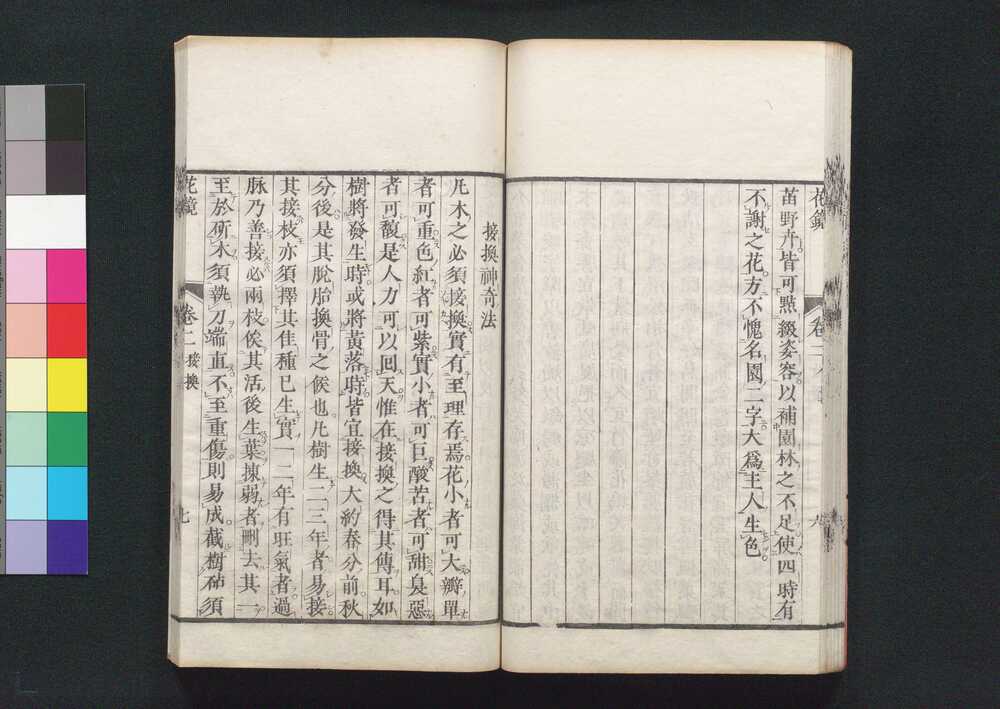 花鏡
卷二
六
苗野卉皆可㸃綴姿容以補園林之不足使四時有
不謝之花方不愧名園二字大爲主人生色
接換神奇法
凡木之必須接換實有至理存焉花小者可大瓣單
者可重色紅者可紫實小者可巨酸苦者可甜臭惡
者可馥是人力可以囘天惟在接換之得其傳耳如
樹將發生時或將黃落時皆宜接換大約春分前秋
分後是其脫胎換骨之候也凡樹生二三年者易接
其接枝亦須擇其佳種已生實一二年有旺氣者過
脉乃善接必兩枝俟其活後生葉揀弱者刪去其一
至於斫木須執刀端直不至重傷則易成截樹砧須
花鏡
卷二 接換
七